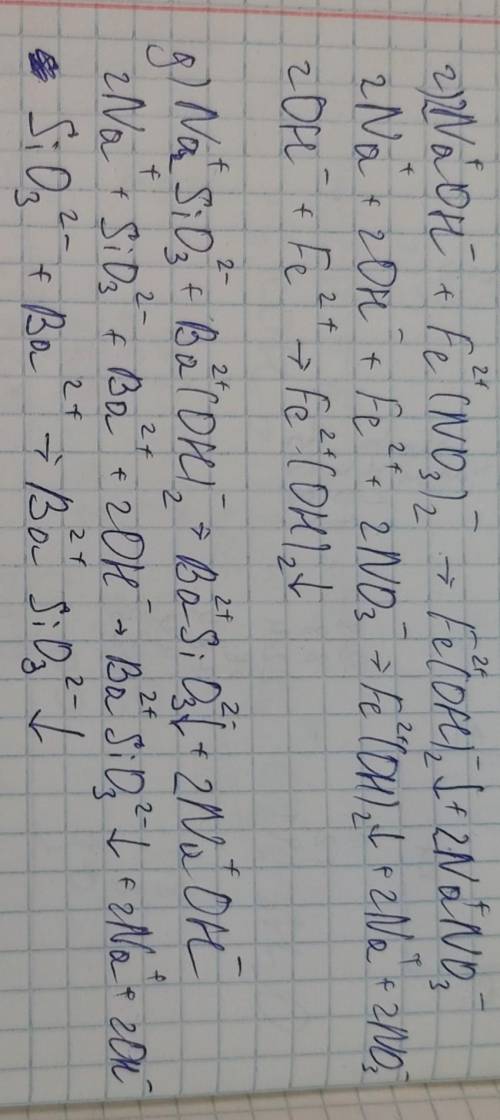 г) 2Na⁺OH⁻ + Fe²⁺(NO₃)₂⁻ → Fe²⁺(OH)₂⁻↓ + 2Na⁺NO₃⁻
2Na⁺ + 2OH⁻ + Fe²⁺ + 2NO₃⁻ → Fe²⁺(OH)₂↓ + 2Na⁺ + 2NO₃⁻
2OH⁻ + Fe²⁺ → Fe²⁺(OH)₂↓
д) Na₂⁺SiO₃²⁻ + Ba²⁺(OH)₂⁻ → Ba²⁺SiO₃²⁻↓ + 2Na⁺OH⁻
2Na⁺ + SiO₃²⁻ + Ba²⁺ + 2OH⁻ → Ba²⁺SiO₃²⁻↓ + 2Na⁺ + 2OH⁻
SiO₃²⁻ + Ba²⁺ → Ba²⁺SiO₃²⁻↓